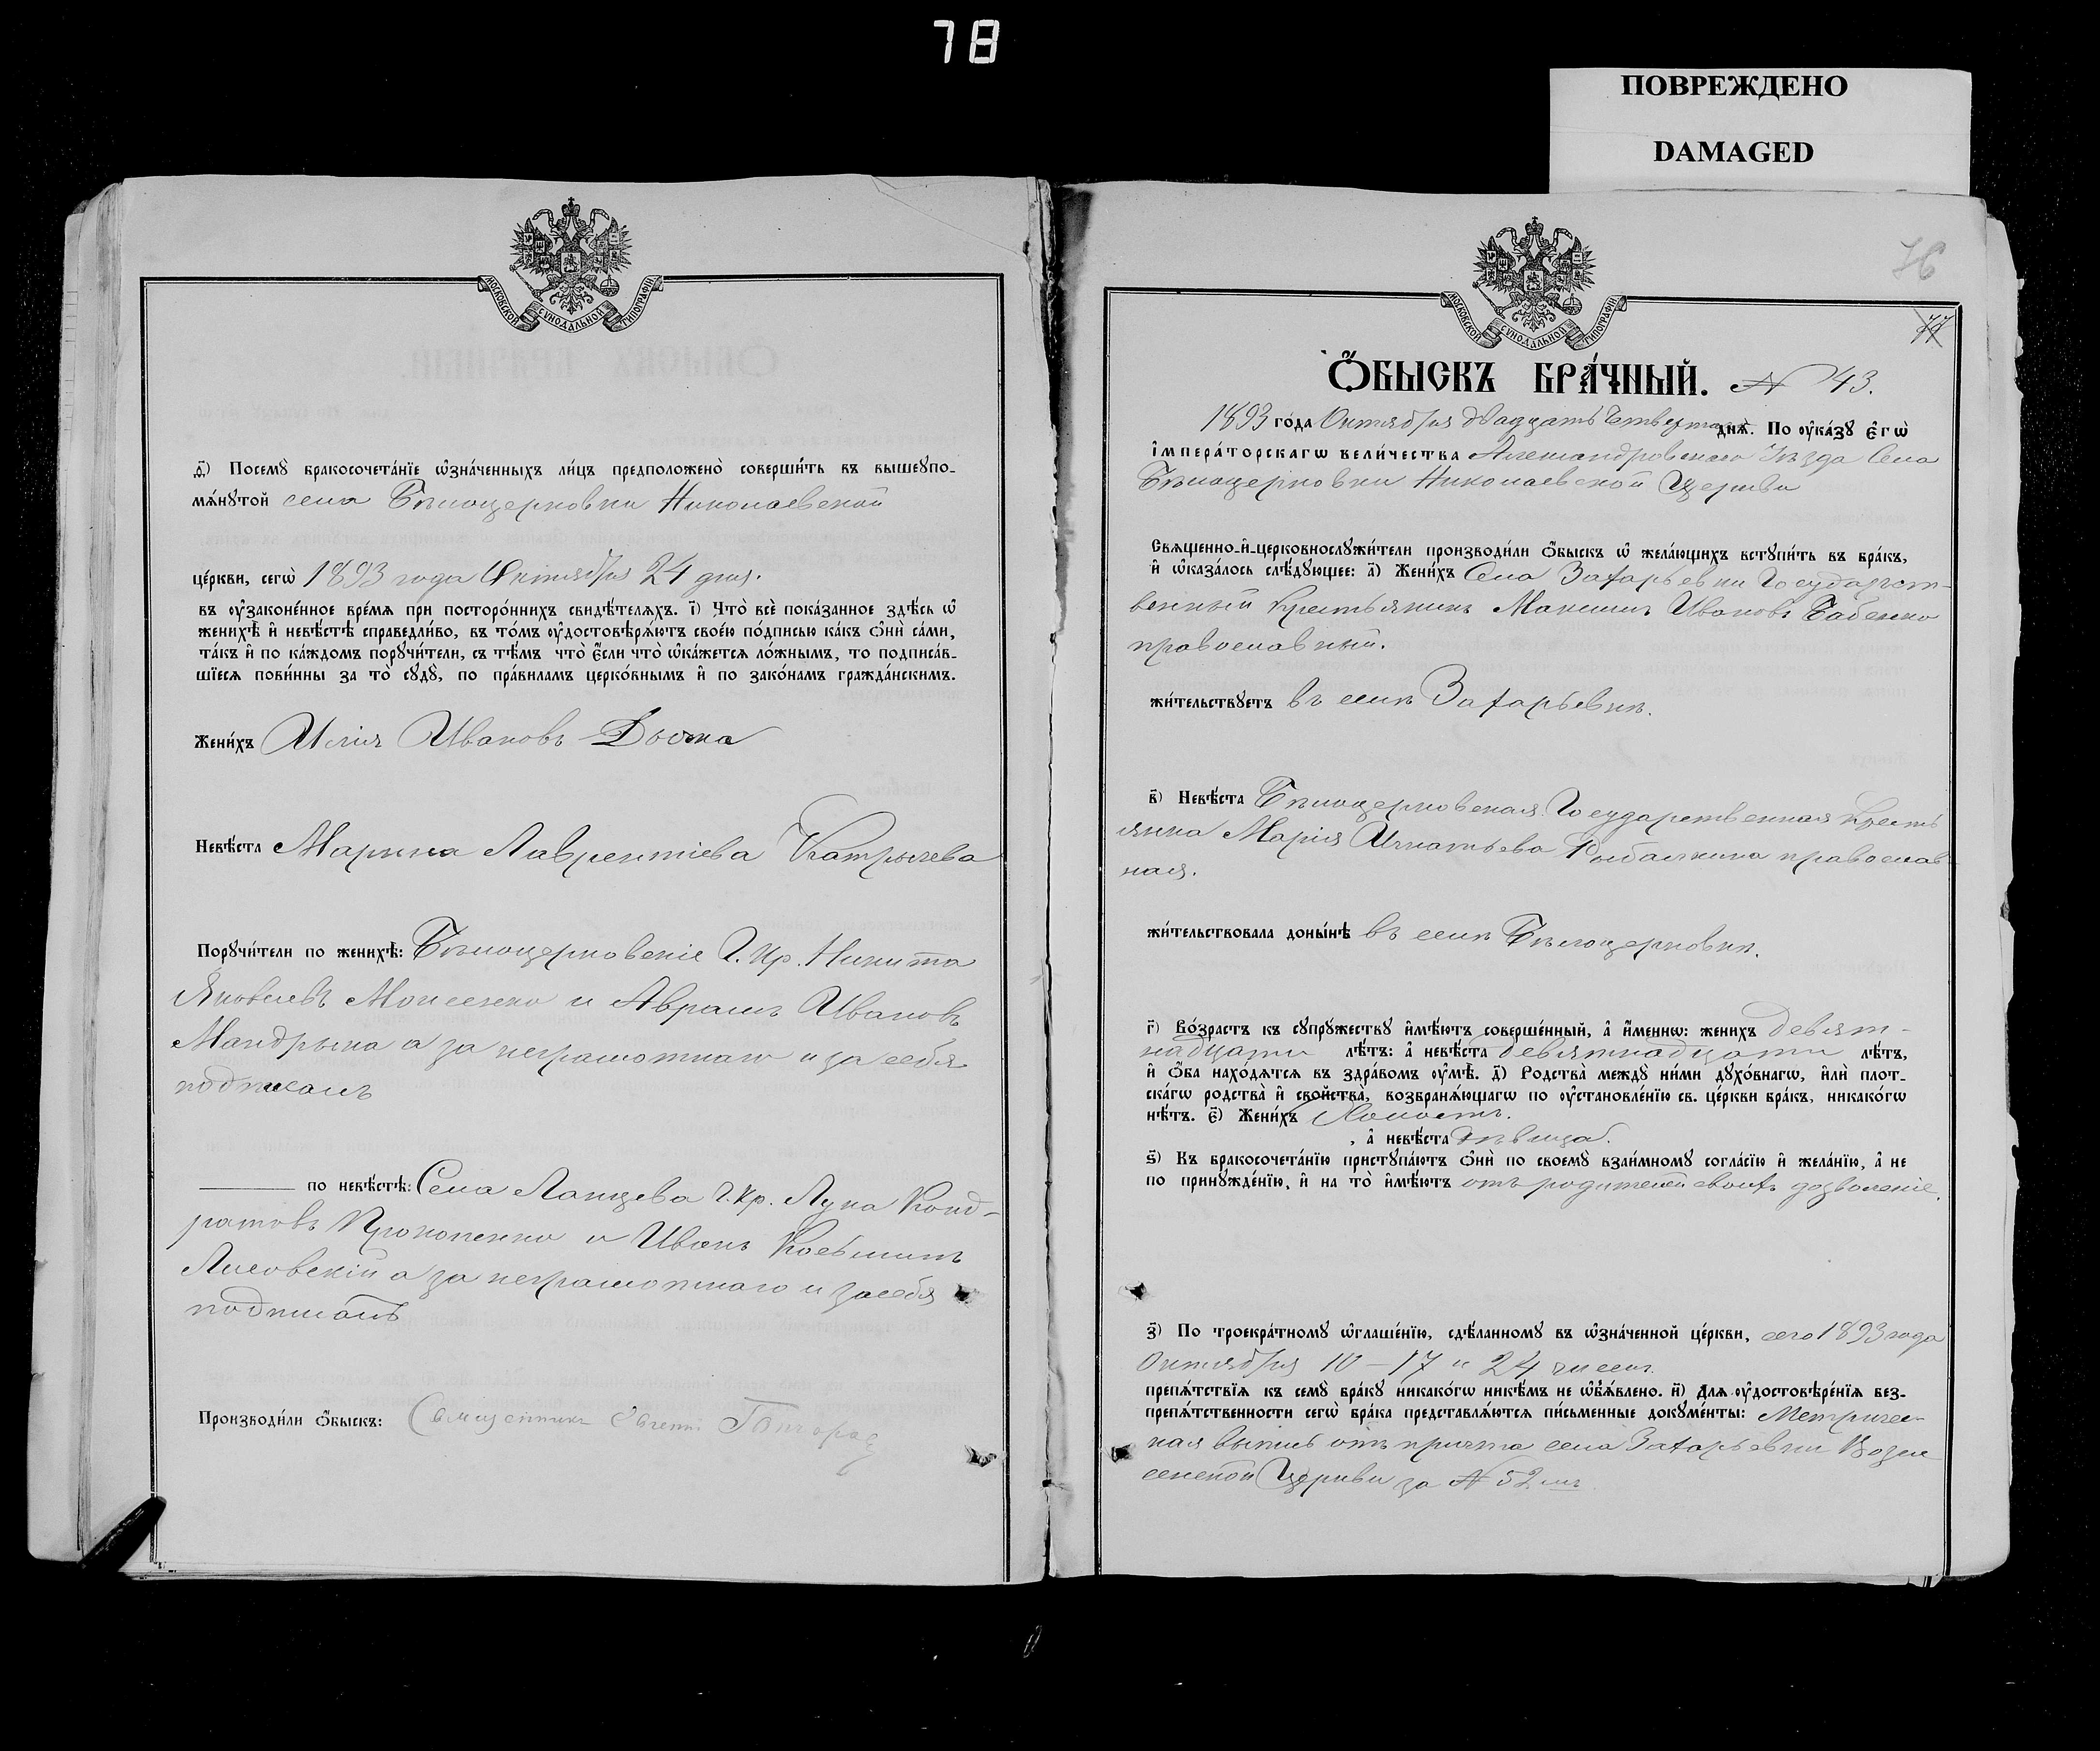 78
ПОВРЕЖДЕНО
DAMAGED
МОСКОВСКОЙ СѴНОДАЛЬНОЙ ТИПОГРАФІИ
Ѳ҃) Посемꙋ̀ бракосочета́нїе ѡ҆зна́ченныхъ ли́цъ предположено̀ соверши́ть въ вышеꙋпо-
мѧ́нꙋтой села Бѣлоцерковки Николаевской
це́ркви, сегѡ̀ 1893 года Октября 24 дня.
въ ᲂу҆зако́ненное вре́мѧ при посторо́ннихъ свидѣ́телѧхъ. і҃) Что̀ всѐ пока́занное здѣ́сь ѡ҆
женихѣ̀ и҆ невѣ́стѣ справедли́во, въ то́мъ ᲂу҆достовѣрѧ́ютъ свое́ю по́дписью ка́къ ѻ҆нѝ са́ми,
та́къ и҆ по ка́ждомъ порꙋчи́тели, съ тѣ́мъ что̀ є҆́сли что̀ ѡ҆ка́жетсѧ ло́жнымъ, то подписа́в-
шїесѧ пови́нны за то̀ сꙋдꙋ̀, по пра́виламъ церко́внымъ и҆ по зако́намъ гражда́нскимъ.
Жени́хъ Илія Ивановъ
Невѣ́ста Марина Лаврентіева
Порꙋчи́тели по женихѣ̀: Бѣлоцерковскіе Г. кр. Никита
Яковлевъ Моисеенко и Аврамъ Ивановъ
Мандрыка а за неграмотнаго и за себя
подписалъ
по невѣ́стѣ: Села Ланцева Г. кр. Лука Конд-
ратовъ Прокопенко и Иванъ Косьминъ
Лисовскій а за неграмотнаго и за себя
подписалъ
Производи́ли ѻ҆́быскъ: Священникъ
76
77
МОСКОВСКОЙ СѴНОДАЛЬНОЙ ТИПОГРАФІИ
Ѻ҆́БЫСКЪ БРА́ЧНЫЙ. № 43.
1893 го́да Октября двадцать четвертаго днѧ̀. По ᲂу҆ка́зꙋ є҆гѡ̀
і҆мпера́торскагѡ вели́чества Александровскаго Уѣзда Села
Бѣлоцерковки Николаевской Церкви
Свѧще́нно-и҆-церковнослꙋжи́тели производи́ли ѻ҆́быскъ ѡ҆ жела́ющихъ встꙋпи́ть въ бра́къ,
и҆ ѡ҆каза́лось слѣ́дꙋющее: а҃) Жени́хъ Села Захарьевки Государст-
венный крестьянинъ Максимъ Ивановъ Бабенко
православный.
жи́тельствꙋетъ въ селѣ Захарьевкѣ.
в҃) Невѣ́ста Бѣлоцерковская Государственная кресть
янка Марія Игнатьева Рыбалкина православ-
ная.
жи́тельствовала доны́нѣ въ селѣ Бѣлоцерковкѣ.
г҃) Во́зрастъ къ сꙋпрꙋ́жествꙋ и҆мѣ́ютъ соверше́нный, а҆ и҆́меннѡ: жени́хъ девят-
надцати лѣ́тъ: а҆ невѣ́ста девятнадцати лѣ́тъ,
и҆ ѻ҆́ба нахо́дѧтсѧ въ здра́вомъ ᲂу҆мѣ̀. д҃) Родства̀ междꙋ̀ ни́ми дꙋхо́внагѡ, и҆лѝ плот-
ска́гѡ родства̀ и҆ сво́йства, возбранѧ́ющагѡ по ᲂу҆становле́нїю св. це́ркви бра́къ, никако́гѡ
нѣ́тъ. є҃) Жени́хъ Холостъ.
, а҆ невѣ́ста дѣвица.
ѕ҃) Къ бракосочета́нїю пристꙋпа́ютъ ѻ҆нѝ по своемꙋ̀ взаи́мномꙋ согла́сїю и҆ жела́нїю, а҆ не
по принꙋжде́нїю, и҆ на то̀ и҆мѣ́ютъ отъ родителей своихъ дозволеніе.
з҃) По троекра́тномꙋ ѡ҆глаше́нїю, сдѣ́ланномꙋ въ ѡ҆зна́ченной це́ркви, сего 1893 года
Октября 10 – 17 и 24 чиселъ
препѧ́тствїѧ къ семꙋ̀ бра́кꙋ никако́гѡ никѣ́мъ не ѡ҆б̾ѧ́влено. и҃) Длѧ ᲂу҆достовѣре́нїѧ без-
препѧ́тственности сегѡ̀ бра́ка представлѧ́ютсѧ пи́сьменные докꙋме́нты: Метричес-
кая выпись отъ причта села Захарьевки Возне
сенской Церкви за № 52 мъ